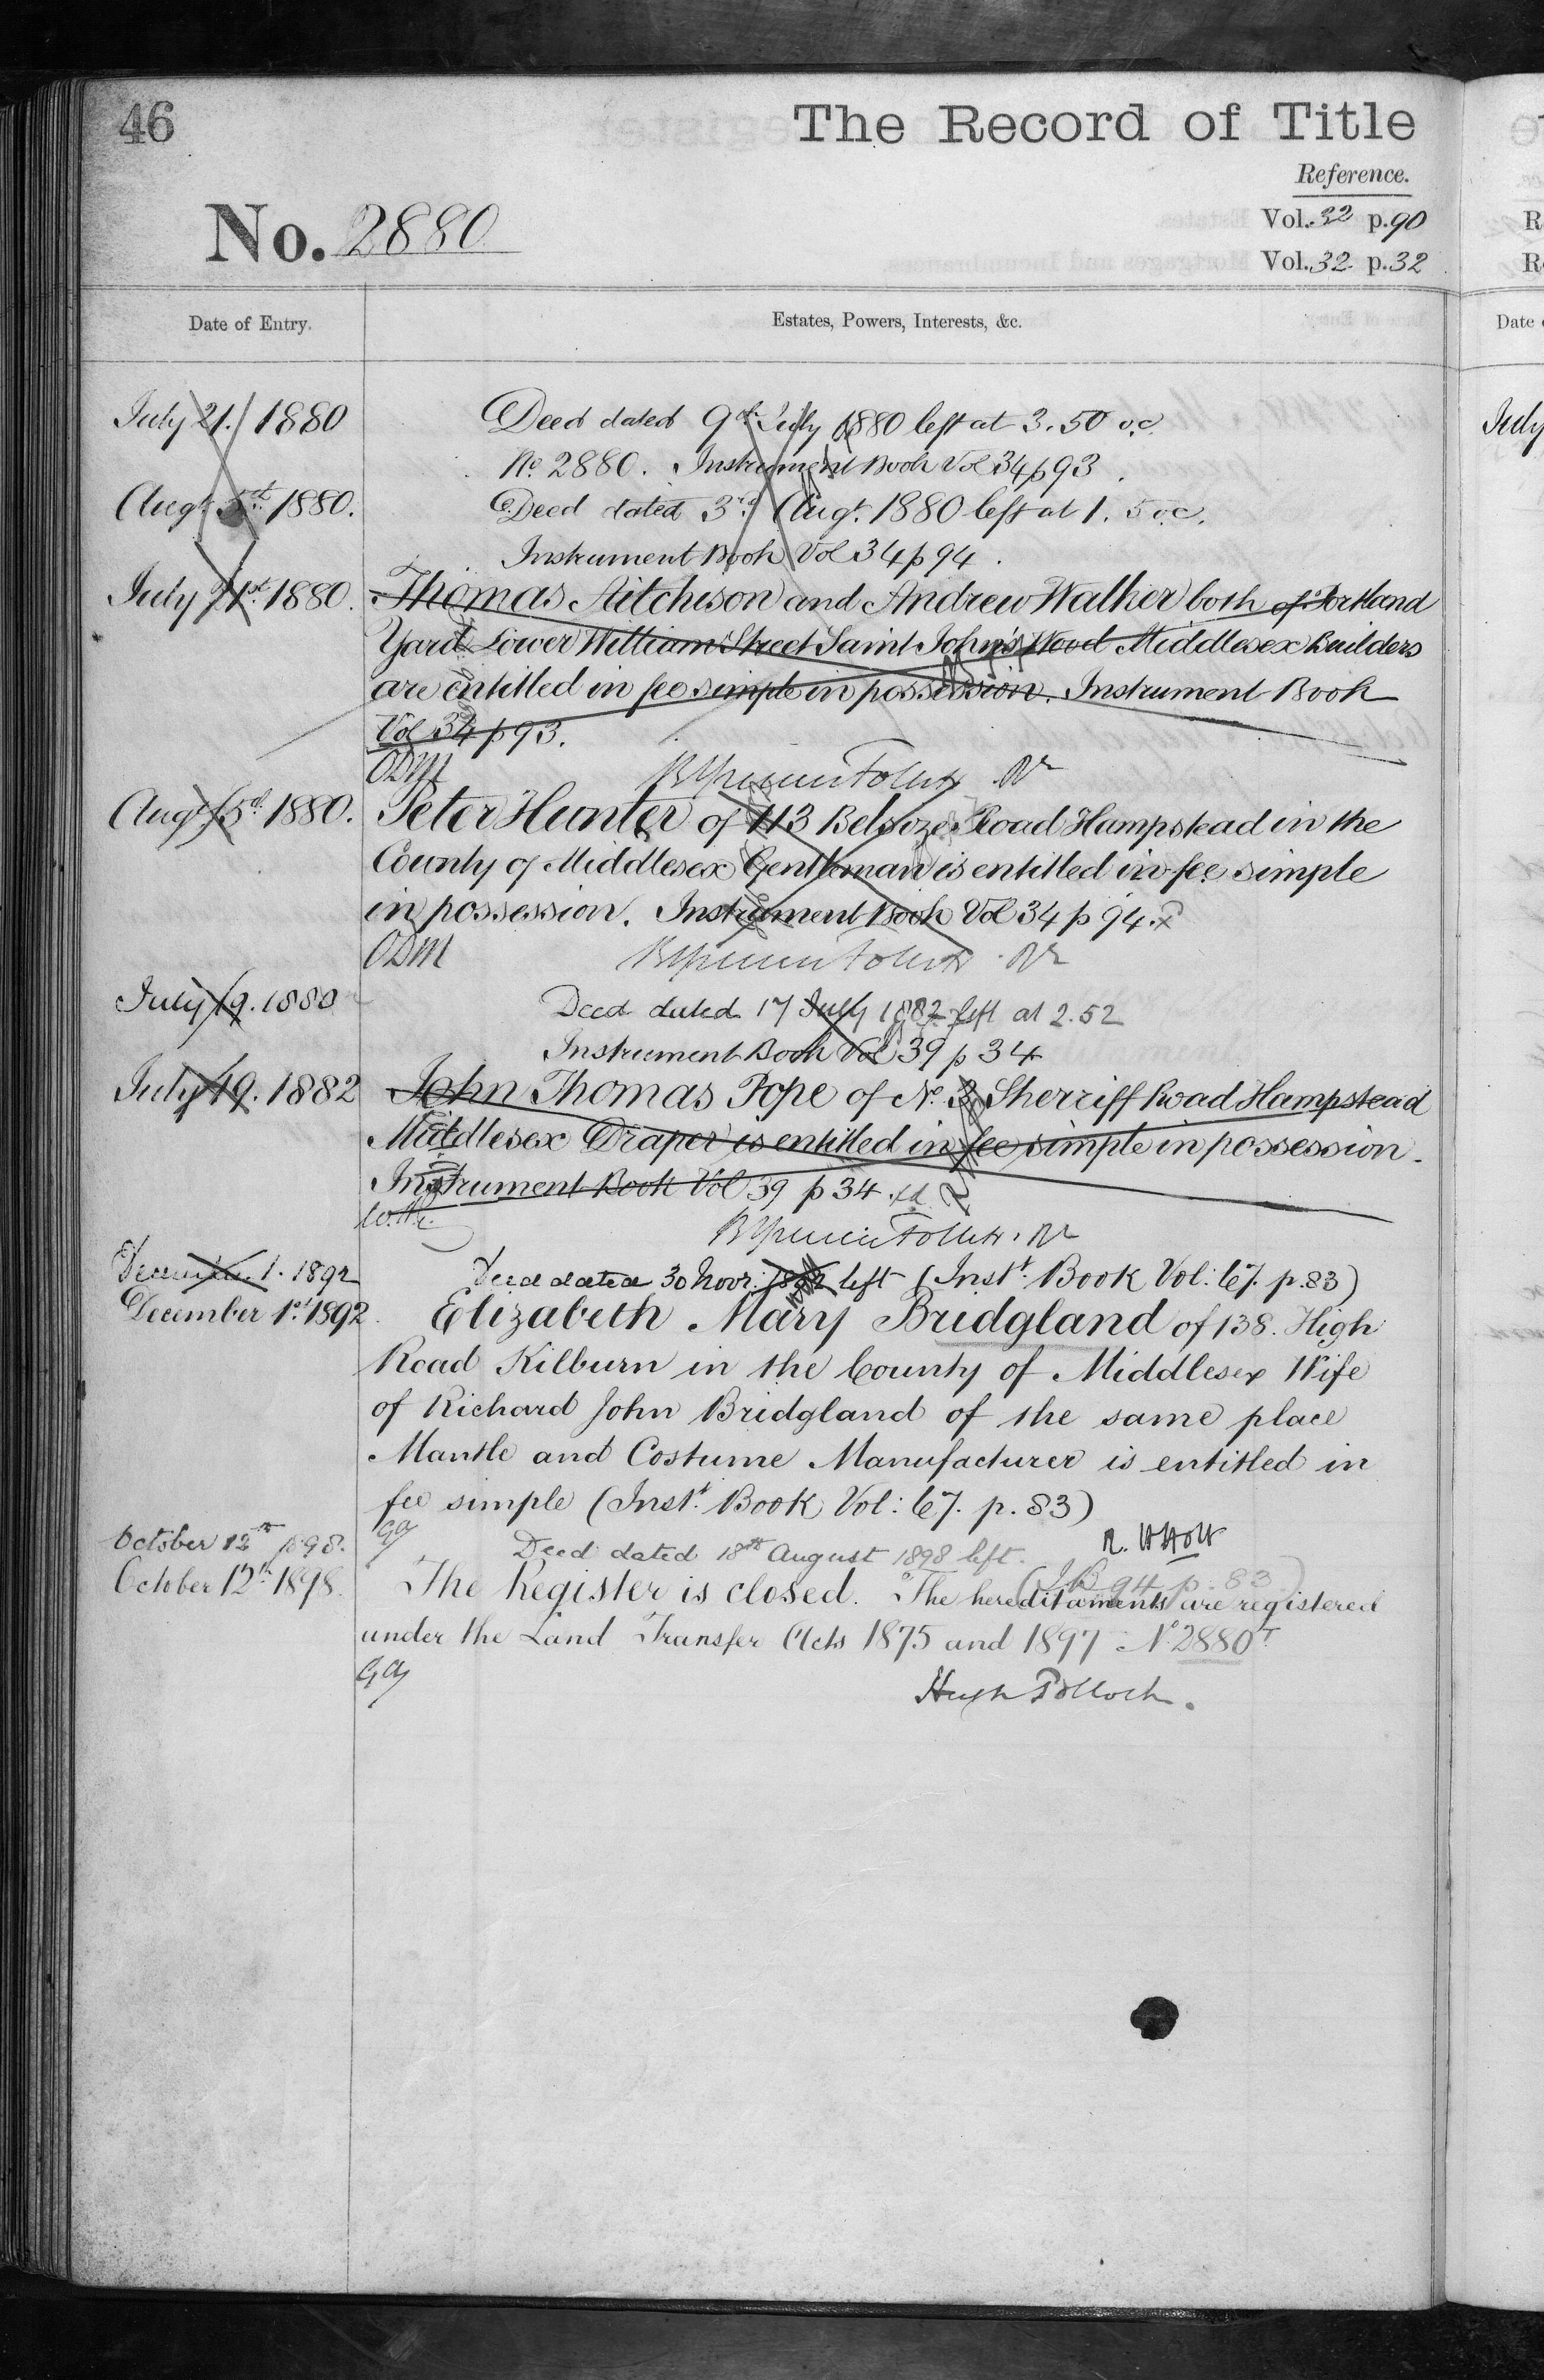 46
The Record of Title
Reference.
No. 2880
Vol. 32 p. 90
Vol. 32 p. 32
Date of Entry.
Estates, Powers, Interests, &c.
July 21. 1880 Deed dated 9th July 1880 left at 3.50 o.c.
No. 2880. Instrument Book Vol 34 p 93.
Augt. 5th 1880. Deed dated 3rd Augt. 1880 left at 1.5 o.c.
Instrument Book Vol 34 p 94.
July 21st. 1880. Thomas Aitchison and Andrew Walker both of Portland
Yard Lower William Street Saint John's Wood Middlesex Builders
are entitled in fee simple in possession. Instrument Book
Vol 34 p 93.
ODM
Augt. 5th 1880. Peter Hunter of 113 Belsize Road Hampstead in the
County of Middlesex Gentleman is entitled in fee simple
in possession. Instrument Book Vol 34 p 94.
ODM
July 19. 1880 Deed dated 17 July 1882 left at 2.52
Instrument Book Vol 39 p 34
July 19. 1882 John Thomas Pope of No. 3 Sherriff Road Hampstead
Middlesex Draper is entitled in fee simple in possession.
Instrument Book Vol 39 p 34
December 1. 1892 Deed dated 30 Novr. 1892 left (Instt. Book Vol: 67. p. 83)
December 1st. 1892. Elizabeth Mary Bridgland of 138. High
Road Kilburn in the County of Middlesex Wife
of Richard John Bridgland of the same place
Mantle and Costume Manufacturer is entitled in
fee simple (Instt. Book Vol: 67. p. 83)
R. W Holt
October 12th 1898. Deed dated 18th August 1898 left.
(I B 94 p. 83)
October 12th 1898. The Register is closed. The hereditaments are registered
under the Land Transfer Acts 1875 and 1897 No 2880T.
Hugh Pollock.
R
R
Date
July